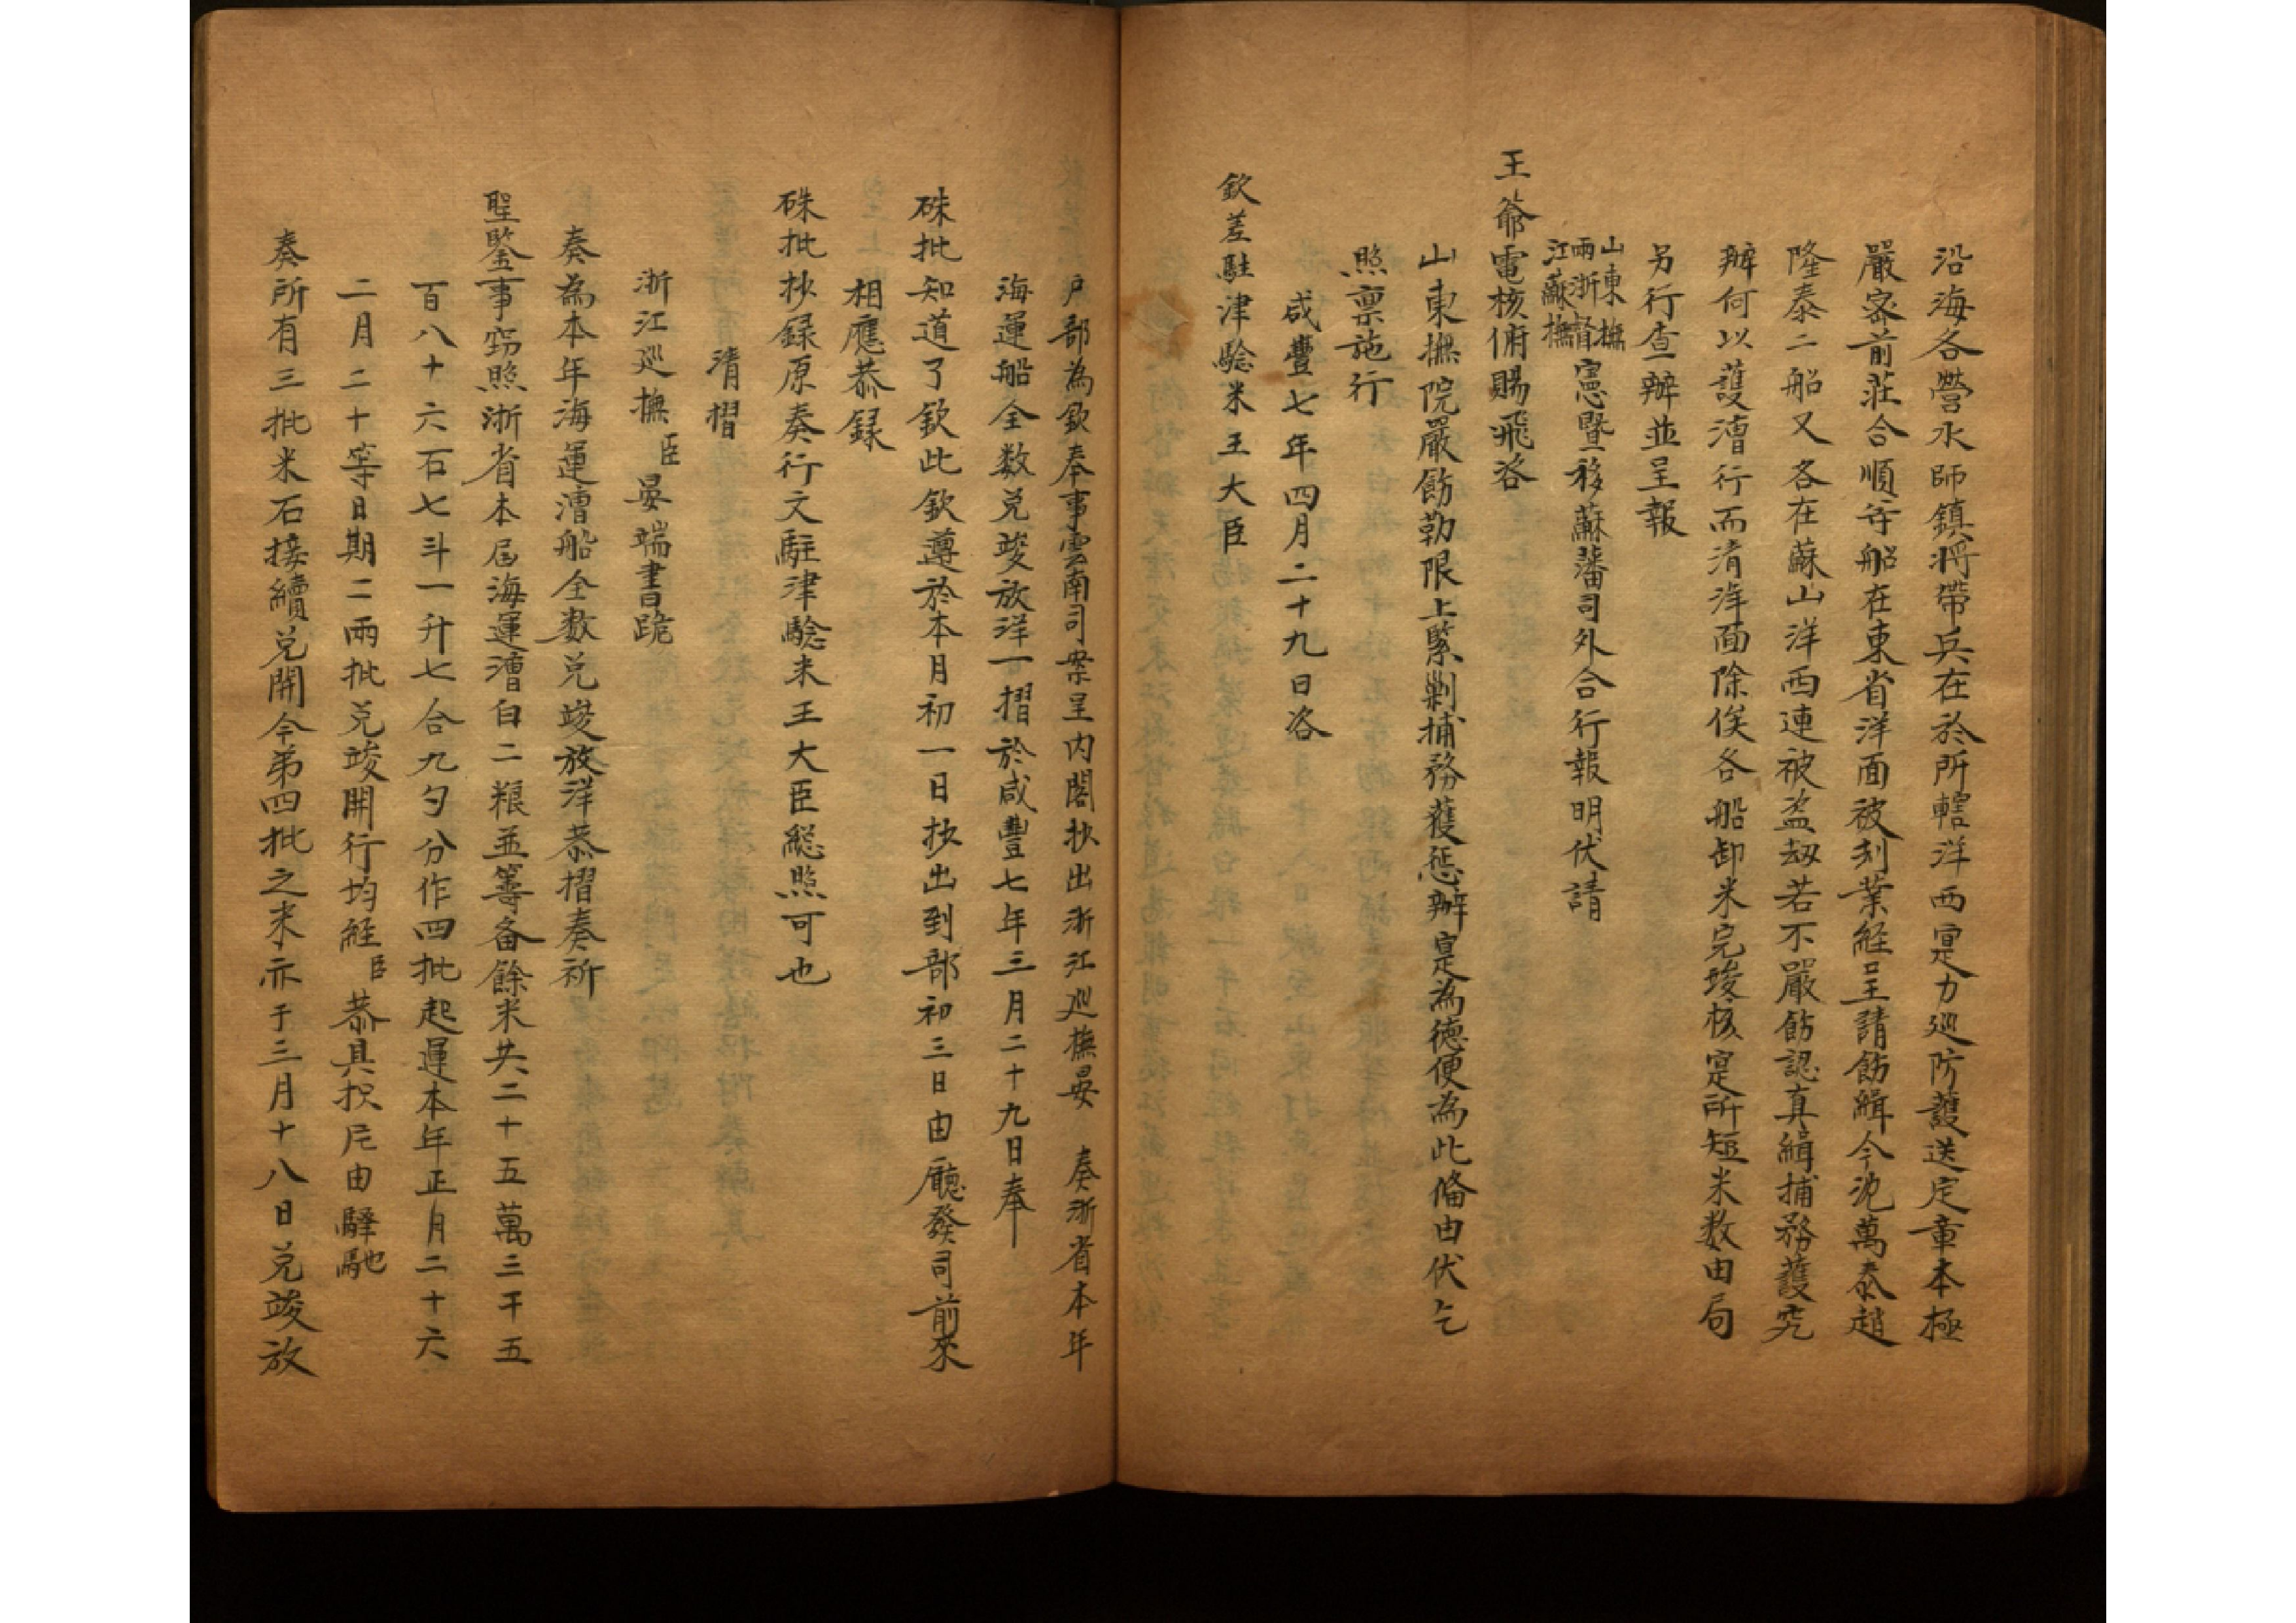 沿海各營水師鎮將帶兵在於所轄洋西寔力巡防護送定章本極
嚴密前莊合順等船在東省洋面被刼業經呈請飭緝今沈萬泰趙
隆泰二船又各在蘇山洋西連被盜刼若不嚴飭認真緝捕務護究
辦何以護漕行而清洋面除俟各船卸米完竣核寔所短米数由局
另行查辦並呈報
山東撫
兩浙督
江蘇撫
憲暨移蘇藩司外合行報明伏請
王爺電核俯賜飛咨
山東撫院嚴飭勒限上緊剿捕務獲懲辦寔為德便為此偹由伏乞
照禀施行
咸豐七年四月二十九日咨
欽差駐津驗米王大臣
户部為欽奉事雲南司案呈内閣抄出浙江巡撫晏 奏浙省本年
海運船全数兑竣放洋一摺於咸豐七年三月二十九日奉
硃批知道了欽此欽遵於本月初一日抄出到部初三日由廳發司前來
相應恭録
硃批抄録原奏行文駐津驗米王大臣総照可也
清摺
浙江巡撫臣晏端書跪
奏為本年海運漕船全数兑竣放洋恭摺奏祈
聖鑒事窃照浙省本届海運漕白二粮並籌备餘米共二十五萬三千五
百八十六石七斗一升七合九勺分作四批起運本年正月二十六
二月二十等日期二兩批兑竣開行均經臣恭具摺片由驛馳
奏所有三批米石接續兑開今第四批之米亦于三月十八日兑竣放